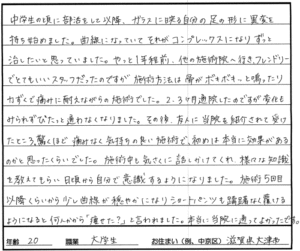 中学生の頃に部活をして以降、ガラスに映る自分の足の形に異変を
持ち始めました。曲線になっていてそれがコンプレックスになりずっと
治したいと思っていました。やっと1年程前、他の施術院へ行き、フレンドリー
でとてもいいスタッフだったのですが施術方法は骨がボキボキっと鳴ったり
かなりで痛みに耐えながらの施術でした。2、3ヶ月通院したのですが変化も
みられずぴたっと通わなくなりました。その後、友人に当院を紹介されて受け
たところ驚くほど痛みなく気持ちの良い施術で、初めは本当に効果がある
のかと思ったくらいでした。施術中も気さくに話しかけてくれ、様々な知識
を教えてもらい日頃から自分で意識するようになりました。施術5回目
以降くらいから少し曲線が穏やかになりショートパンツも躊躇なく履ける
ようになると何人かから「痩せた?」と言われました。本当に当院に通ってよかったです。
年齢 20 職業 大学生 お住まい(例、中京区) 滋賀県大津市